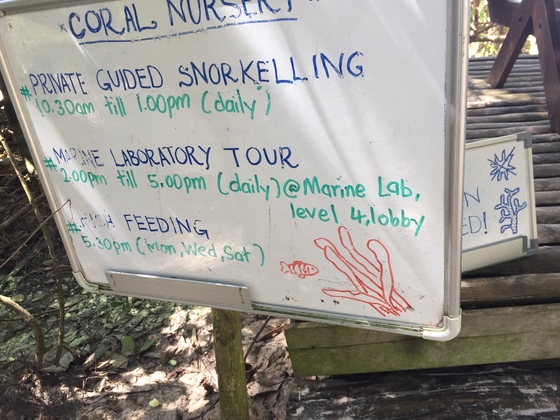 *CORAL NURSERY*
# PRIVATE GUIDED SNORKELLING
10.30am till 1.00pm (daily)
# MARINE LABORATORY TOUR
2.00pm till 5.00pm (daily)@Marine Lab,
level 4,lobby
# FISH FEEDING
5.30pm (Mon,Wed,Sat)
N
ED!